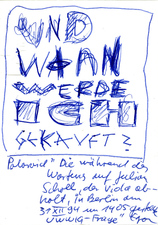 UND
WANN
WERDE
ICH
GEKAUFT?
Polaroid "Die während des
Wartens auf Julian
Scholl, der Video ab-
holt, in Berlin am
31 XII 94 um 1405 gestellte
Frage"